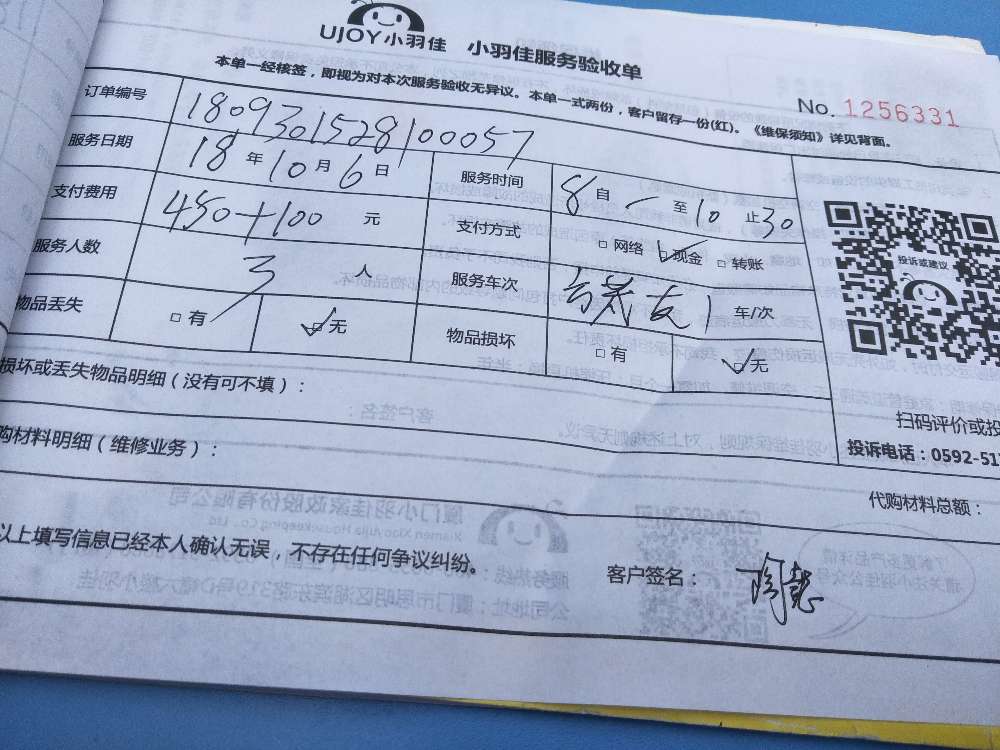 UJOY小羽佳 小羽佳服务验收单
本单一经核签，即视为对本次服务验收无异议。本单一式两份，客户留存一份(红)。《维保须知》详见背面。
No. 1256331
订单编号 1809301528100057
服务日期 18 年 10 月 6 日 服务时间 8 自 至 10 止 30
支付费用 450+100 元 支付方式 □ 网络 □ 现金 □ 转账
服务人数 3 人 服务车次 1 车/次
物品丢失 □ 有 □ 无 物品损坏 □ 有 □ 无
投诉或建议
损坏或丢失物品明细（没有可不填）：
扫码评价或投
购材料明细（维修业务）：
投诉电话：0592-51
代购材料总额：
以上填写信息已经本人确认无误，不存在任何争议纠纷。
客户签名：